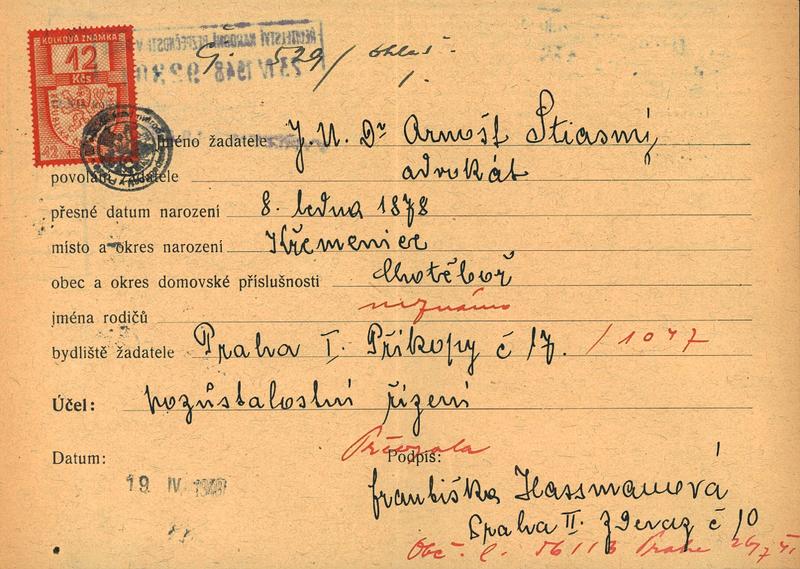 KOLKOVÁ ZNÁMKA
12
Kčs
529/
1.
ŘEDITELSTVÍ NÁRODNÍ BEZPEČNOSTI V
23 IV 1948
jméno žadatele J. U. Dr Arnošt Stiasný,
povolání žadatele advokát
přesné datum narození 8. ledna 1878
místo a okres narození Křemenice
obec a okres domovské příslušnosti Chotěboř
jména rodičů neznámo
bydliště žadatele Praha I. Příkopy č 17. /1047
Účel: pozůstalostní řízení
Převzala
Datum: Podpis:
19 IV 1948
Františka Hassmanová
Praha II. Zderaz č 10
Obč. l.